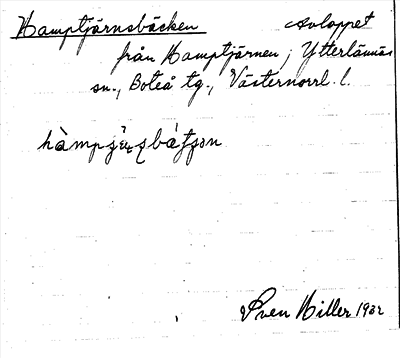 Hamptjärnsbäcken Avloppet
från Hamptjärnen; Ytterlännäs
sn., Boteå tg., Västernorrl. l.
Sven Hiller 1932